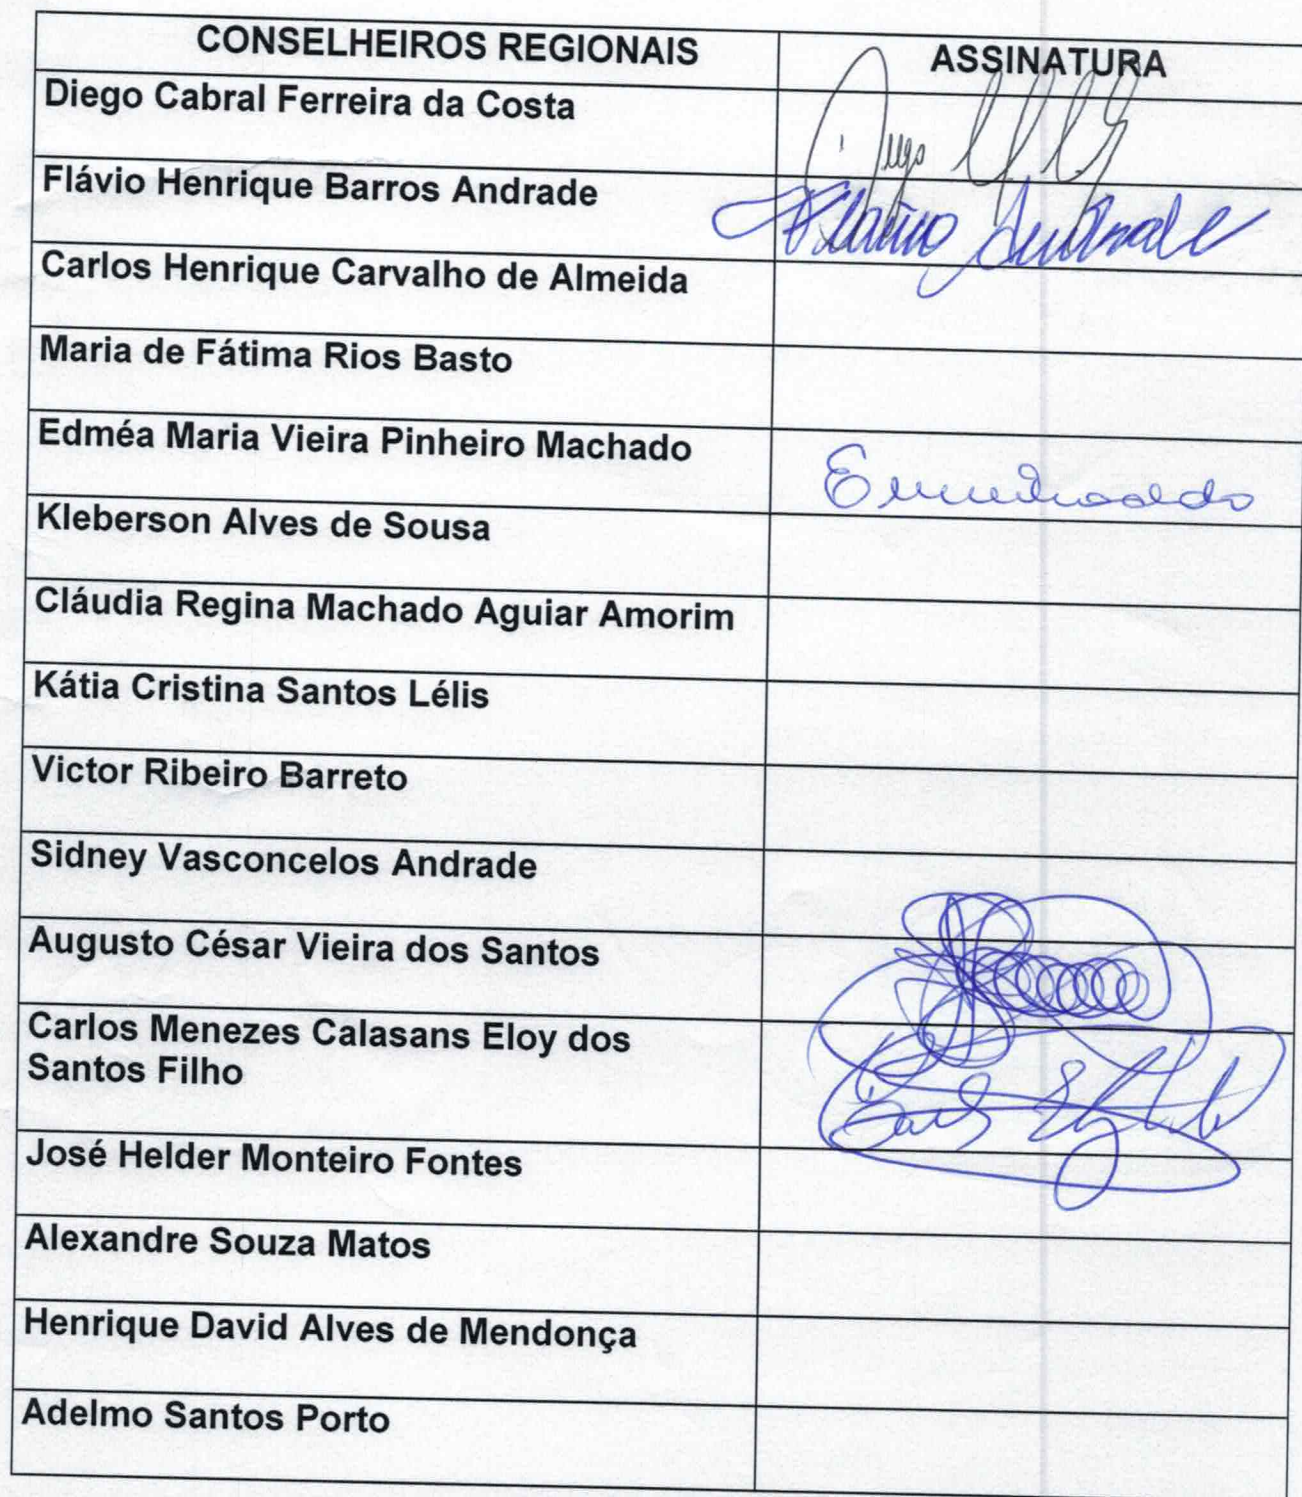 CONSELHEIROS REGIONAIS ASSINATURA
Diego Cabral Ferreira da Costa
Flávio Henrique Barros Andrade Flávio Andrade
Carlos Henrique Carvalho de Almeida
Maria de Fátima Rios Basto
Edméa Maria Vieira Pinheiro Machado
Kleberson Alves de Sousa
Cláudia Regina Machado Aguiar Amorim
Kátia Cristina Santos Lélis
Victor Ribeiro Barreto
Sidney Vasconcelos Andrade
Augusto César Vieira dos Santos
Carlos Menezes Calasans Eloy dos
Santos Filho
José Helder Monteiro Fontes
Alexandre Souza Matos
Henrique David Alves de Mendonça
Adelmo Santos Porto